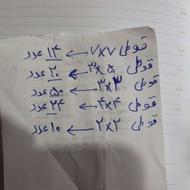 قوطی ۷x۷ ← ۱۴ عدد
قوطی ۳x۵ ← ۲۰ عدد
قوطی ۳x۳ ← ۵۰ عدد
قوطی ۴x۴ ← ۲۴ عدد
قوطی ۲x۲ ← ۱۰ عدد